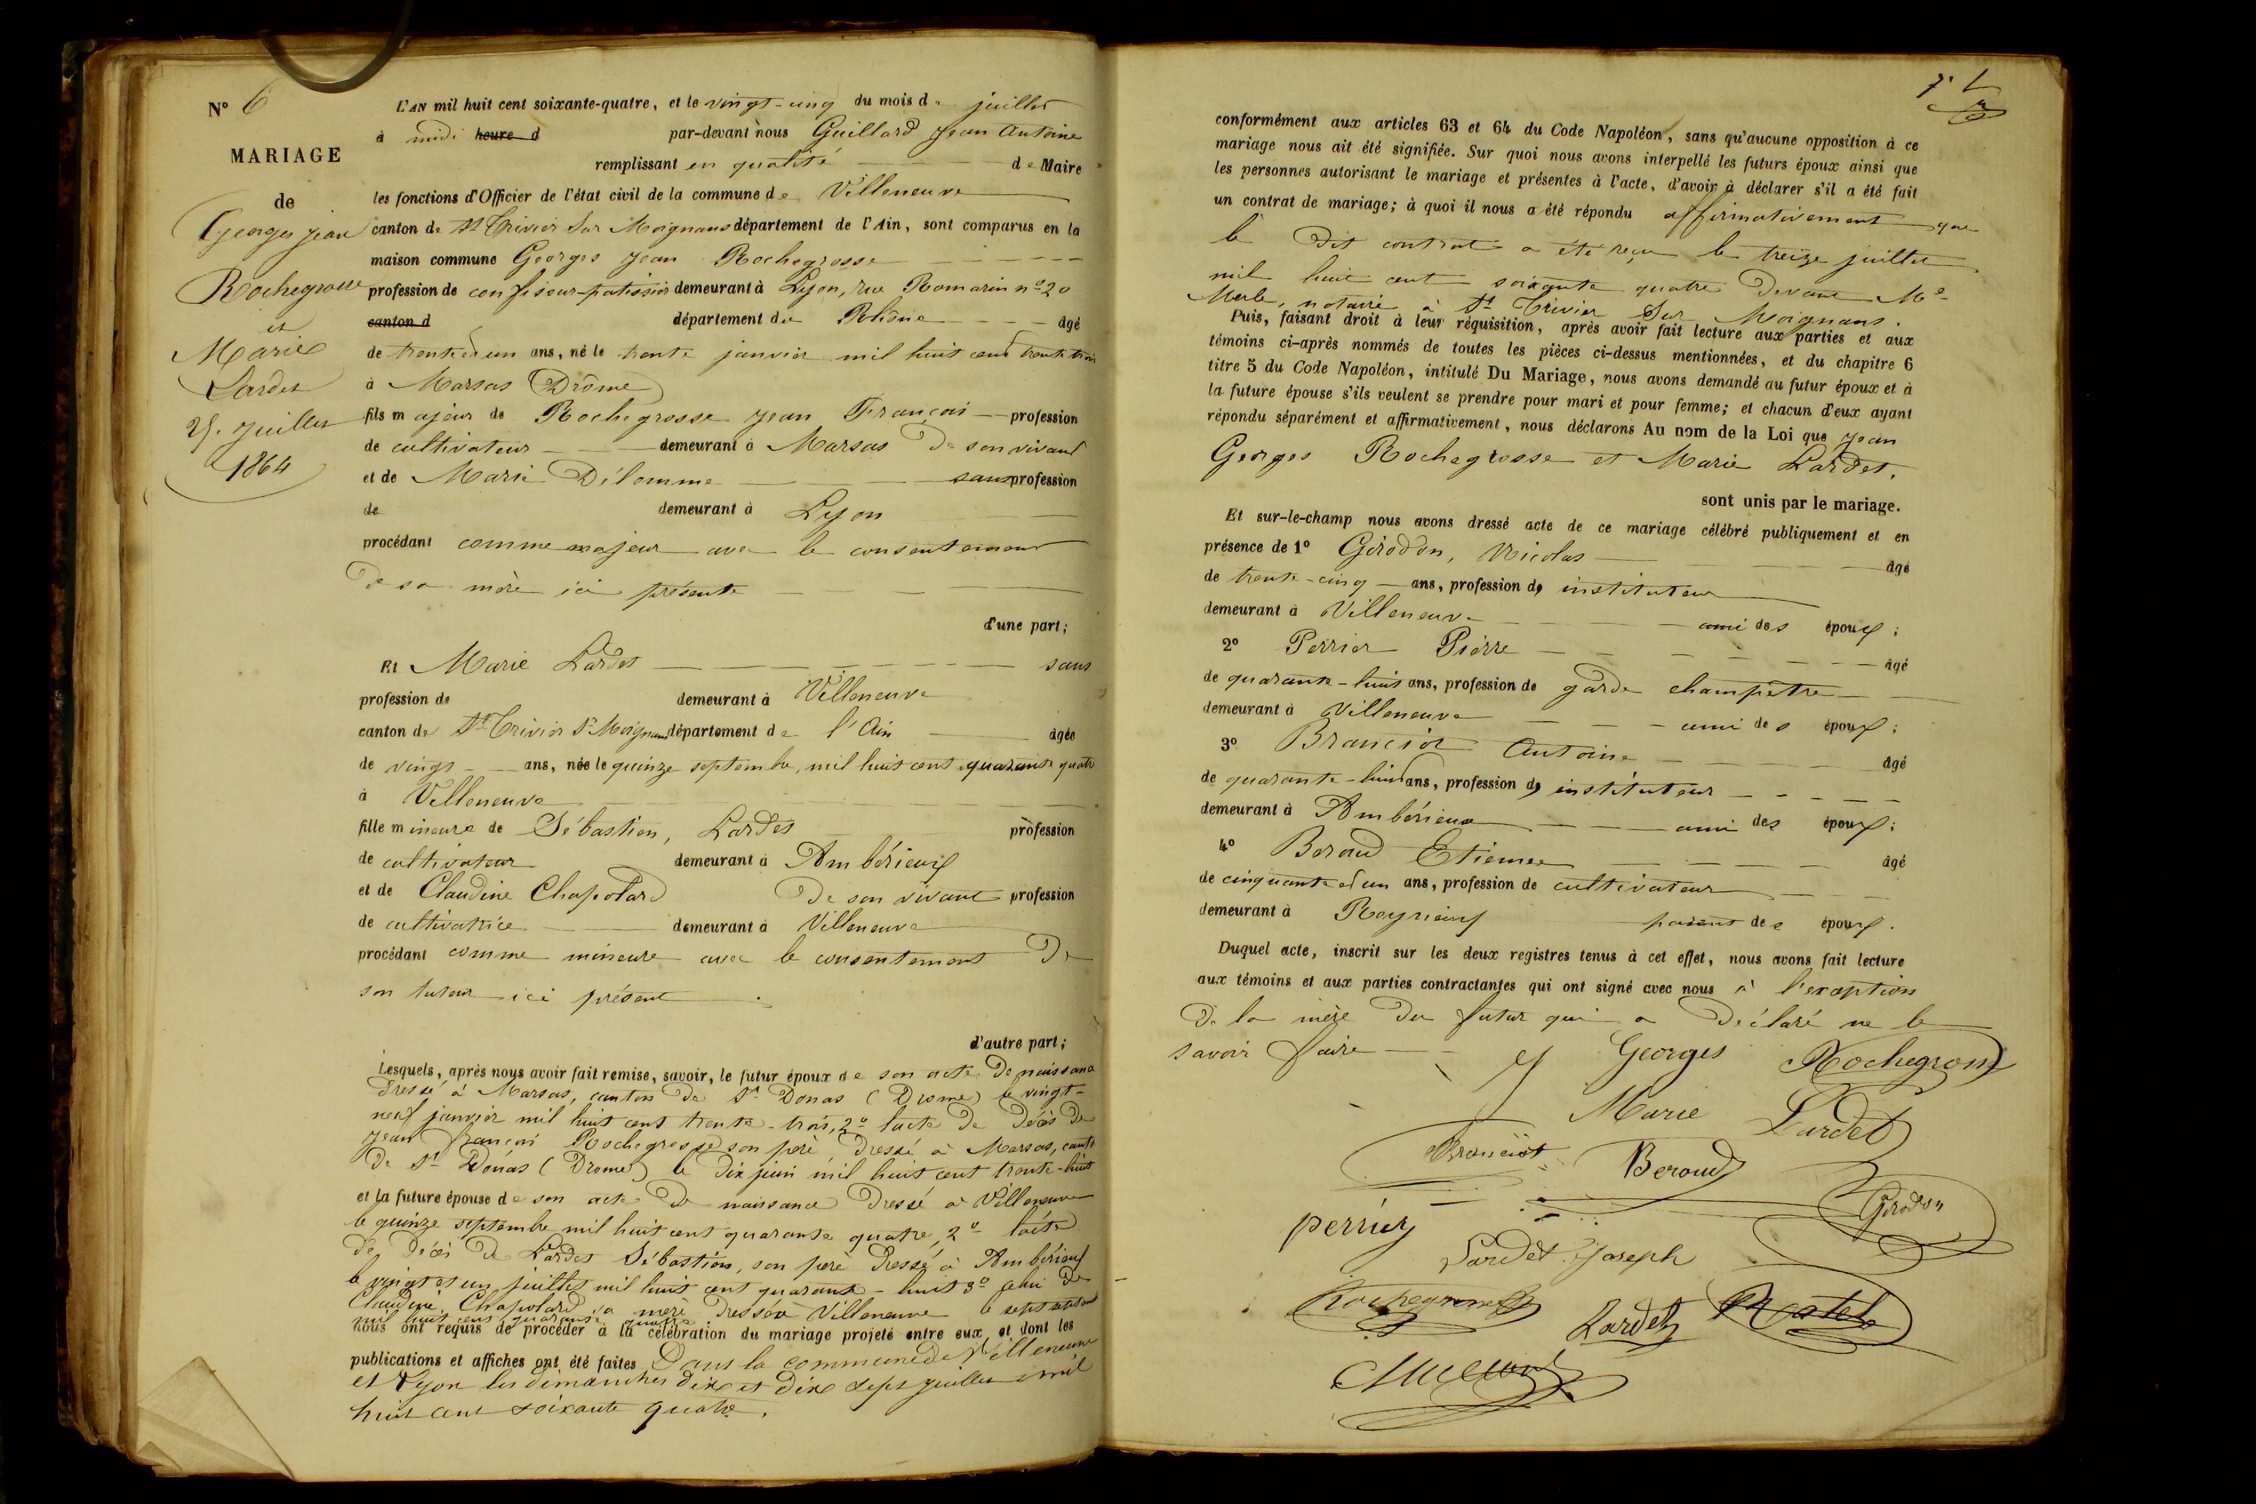 N° 6
MARIAGE
de
Georges jean
Rochegrosse
et
Marie
Lardet
25. juillet
1864
L'AN mil huit cent soixante-quatre, et le vingt-cinq du mois de juillet
à midi heure d par-devant nous Guillard Jean Antoine
remplissant en qualité de Maire
les fonctions d'Officier de l'état civil de la commune de Villeneuve
canton de St Trivier Sur Moignans département de l'Ain, sont comparus en la
maison commune Georges Jean Rochegrosse
profession de confiseur-patissier demeurant à Lyon, rue Romarin n° 20
canton d département du Rhône âgé
de trente et un ans, né le trente janvier mil huit cent trente trois
à Marsas (Drôme)
fils majeur de Rochegrosse Jean François profession
de cultivateur demeurant à Marsas De son vivant
et de Marie Délomme sans profession
de demeurant à Lyon
procédant comme majeur avec le consentement
De sa mère ici présente
d'une part;
Et Marie Lardet sans
profession de demeurant à Villeneuve
canton de St Trivier Sr Moignans département de l'Ain âgée
de vingt ans, née le quinze septembre, mil huit cent quarante quatre
à Villeneuve
fille mineure de Sébastien, Lardet profession
de cultivateur demeurant à Ambérieux
et de Claudine Chapolard De son vivant profession
de cultivatrice demeurant à Villeneuve
procédant comme mineure avec le consentement De
son tuteur ici présent.
d'autre part;
Lesquels, après nous avoir fait remise, savoir, le futur époux de son acte De naissance
Dressé à Marsas, canton De St Donas (Drome) le vingt-
neuf janvier mil huit cent trente-trois, 2° l'acte De Décès De
Jean François Rochegrosse son père Dressé à Marsas, canton
De St Donas (Drome) le Dix juin mil huit cent trente-huit
et la future épouse de son acte De naissance Dressé à Villeneuve
le quinze septembre mil huit cent quarante quatre, 2° l'acte
De Décès De Lardet Sébastien, son père Dressé à Ambérieux
le vingt et un juillet mil huit cent quarante-huit 3° celui De
Claudine Chapolard sa mère Dressé à Villeneuve le sept
mil huit cent quarante quatre
nous ont requis de procéder à la célébration du mariage projeté entre eux, et dont les
publications et affiches ont été faites Dans la commune de Villeneuve
et Lyon les dimanches dix et dix sept juillet mil
huit cent soixante quatre.
conformément aux articles 63 et 64 du Code Napoléon, sans qu'aucune opposition à ce
mariage nous ait été signifiée. Sur quoi nous avons interpellé les futurs époux ainsi que
les personnes autorisant le mariage et présentes à l'acte, d'avoir à déclarer s'il a été fait
un contrat de mariage; à quoi il nous a été répondu affirmativement que
le Dit contrat a été reçu le treize juillet
mil huit cent soixante quatre Devant Me
Merle, notaire à St Trivier Sur Moignans.
Puis, faisant droit à leur réquisition, après avoir fait lecture aux parties et aux
témoins ci-après nommés de toutes les pièces ci-dessus mentionnées, et du chapitre 6
titre 5 du Code Napoléon, intitulé Du Mariage, nous avons demandé au futur époux et à
la future épouse s'ils veulent se prendre pour mari et pour femme; et chacun d'eux ayant
répondu séparément et affirmativement, nous déclarons Au nom de la Loi que Jean
Georges Rochegrosse et Marie Lardet,
sont unis par le mariage.
Et sur-le-champ nous avons dressé acte de ce mariage célébré publiquement et en
présence de 1° Girodon, Nicolas âgé
de trente-cinq ans, profession de instituteur
demeurant à Villeneuve ami des époux;
2° Perrier Pierre âgé
de quarante-huit ans, profession de garde champêtre
demeurant à Villeneuve ami des époux;
3° Branciot Antoine âgé
de quarante-huit ans, profession de instituteur
demeurant à Ambérieux ami des époux;
4° Beroud Etienne âgé
de cinquante et un ans, profession de cultivateur
demeurant à Reyrieux parent des époux.
Duquel acte, inscrit sur les deux registres tenus à cet effet, nous avons fait lecture
aux témoins et aux parties contractantes qui ont signé avec nous à l'exception
De la mère Du futur qui a Déclaré ne le
savoir faire
J Georges Rochegrosse
Marie Lardet
Branciot
Beroud
Girodon
perrier
Lardet Joseph
Rochegrosse
Lardet